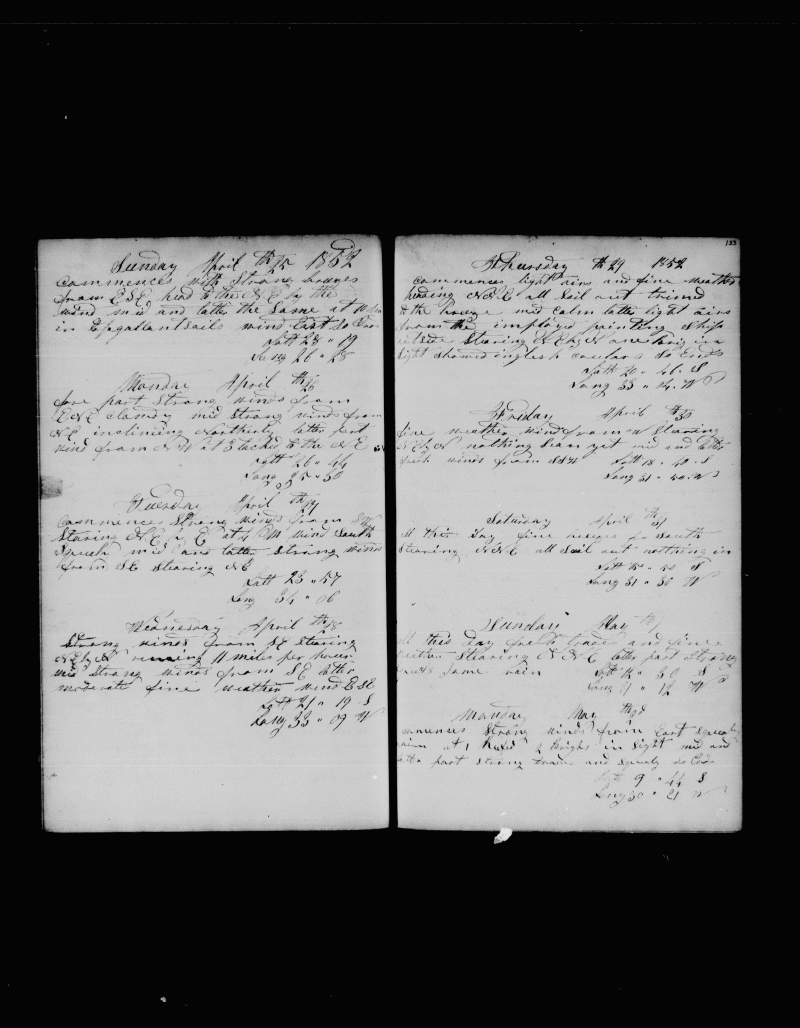 Sunday April th25 1852
Commences with Strong breezes
from ESE head to the NE by the
wind mid and latter the Same at
in topgallantsails wind East So Ends
Latt 28 " 19
Long 26 " 28
Monday April th26
fore part Strong winds from
ENE cloudy mid Strong winds from
NE inclining Northerly latter part
wind from NW at 3 tacked to the NE
Latt 26 " 44
Long 25 " 30
Tuesday April th27
Commences Strong winds from
Staring NE by E at 4 PM wind South
Squaly mid and latter strong winds
from SE Staring NE
Latt 23 " 57
Long 34 " 06
Wednesday April th28
Strong winds from SE Staring
NEbyN running 11 miles per hour
mid Strong winds from SE latter
moderate fine weather wind ESE
Latt 21 " 19 S
Long 33 " 09 W
123
Thursday th29 1852
Commences light airs and fine weather
heading NNE all Sail out trimed
to the breeze mid calm latter light airs
from the imployd painting Ship
outside Staring NEbyN one Brig in
Sight Showed inglesh coulars So Ends
Latt 20 " 46 " S
Long 33 " 14 " W
Friday April th30
fine weather wind from Staring
NEbyN nothing Sean yet mid and latter
fresh winds from SSW
Latt 18 " 40 " S
Long 31 " 40 " W
Saturday April th31
all this Day fine breezes from South
Staring NNE all Sail out nothing in
Latt 15 " 50 S
Long 31 " 30 W
Sunday May th1
all this Day fresh trades and fine
weather Staring NNE latter part Strong
Some rain
Latt 12 " 30 S
Long 31 " 12 W
Monday May th2
Commences Strong winds from East Squaly
rain at 1 2 Ships in Sight mid and
latter part Strong trades and Squaly So Ends
Latt 9 " 44 S
Long 30 " 21 W